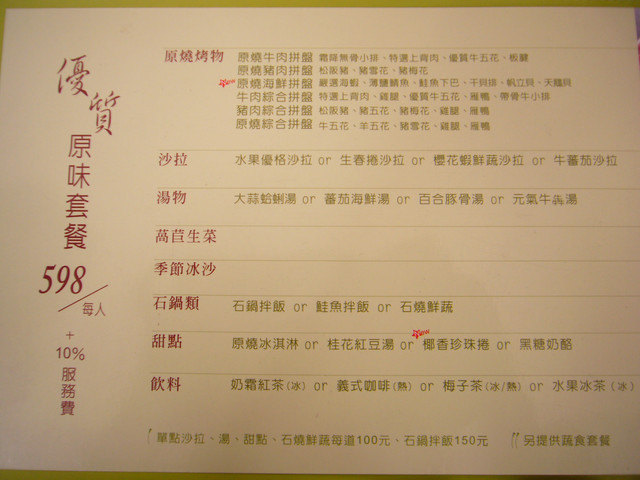 優質
原味套餐
598
每人
+
10%
服務費
原燒烤物
原燒牛肉拼盤 霜降無骨小排、特選上背肉、優質牛五花、板腱
原燒豬肉拼盤 松阪豬、豬雪花、豬梅花
原燒海鮮拼盤 嚴選海蝦、薄鹽鯖魚、鮭魚下巴、干貝排、帆立貝、天糧貝
牛肉綜合拼盤 特選上背肉、雞腿、優質牛五花、雁鴨、帶骨牛小排
豬肉綜合拼盤 松阪豬、豬五花、豬梅花、雞腿、雁鴨
原燒綜合拼盤 牛五花、羊五花、豬雪花、雞腿、雁鴨
沙拉 水果優格沙拉 or 生春捲沙拉 or 櫻花蝦鮮蔬沙拉 or 牛蕃茄沙拉
湯物 大蒜蛤蜊湯 or 蕃茄海鮮湯 or 百合豚骨湯 or 元氣牛犇湯
萵苣生菜
季節冰沙
石鍋類 石鍋拌飯 or 鮭魚拌飯 or 石燒鮮蔬
甜點 原燒冰淇淋 or 桂花紅豆湯 or 椰香珍珠捲 or 黑糖奶酪
飲料 奶霜紅茶(冰) or 義式咖啡(熱) or 梅子茶(冰/熱) or 水果冰茶(冰)
單點沙拉、湯、甜點、石燒鮮蔬每道100元、石鍋拌飯150元 另提供蔬食套餐